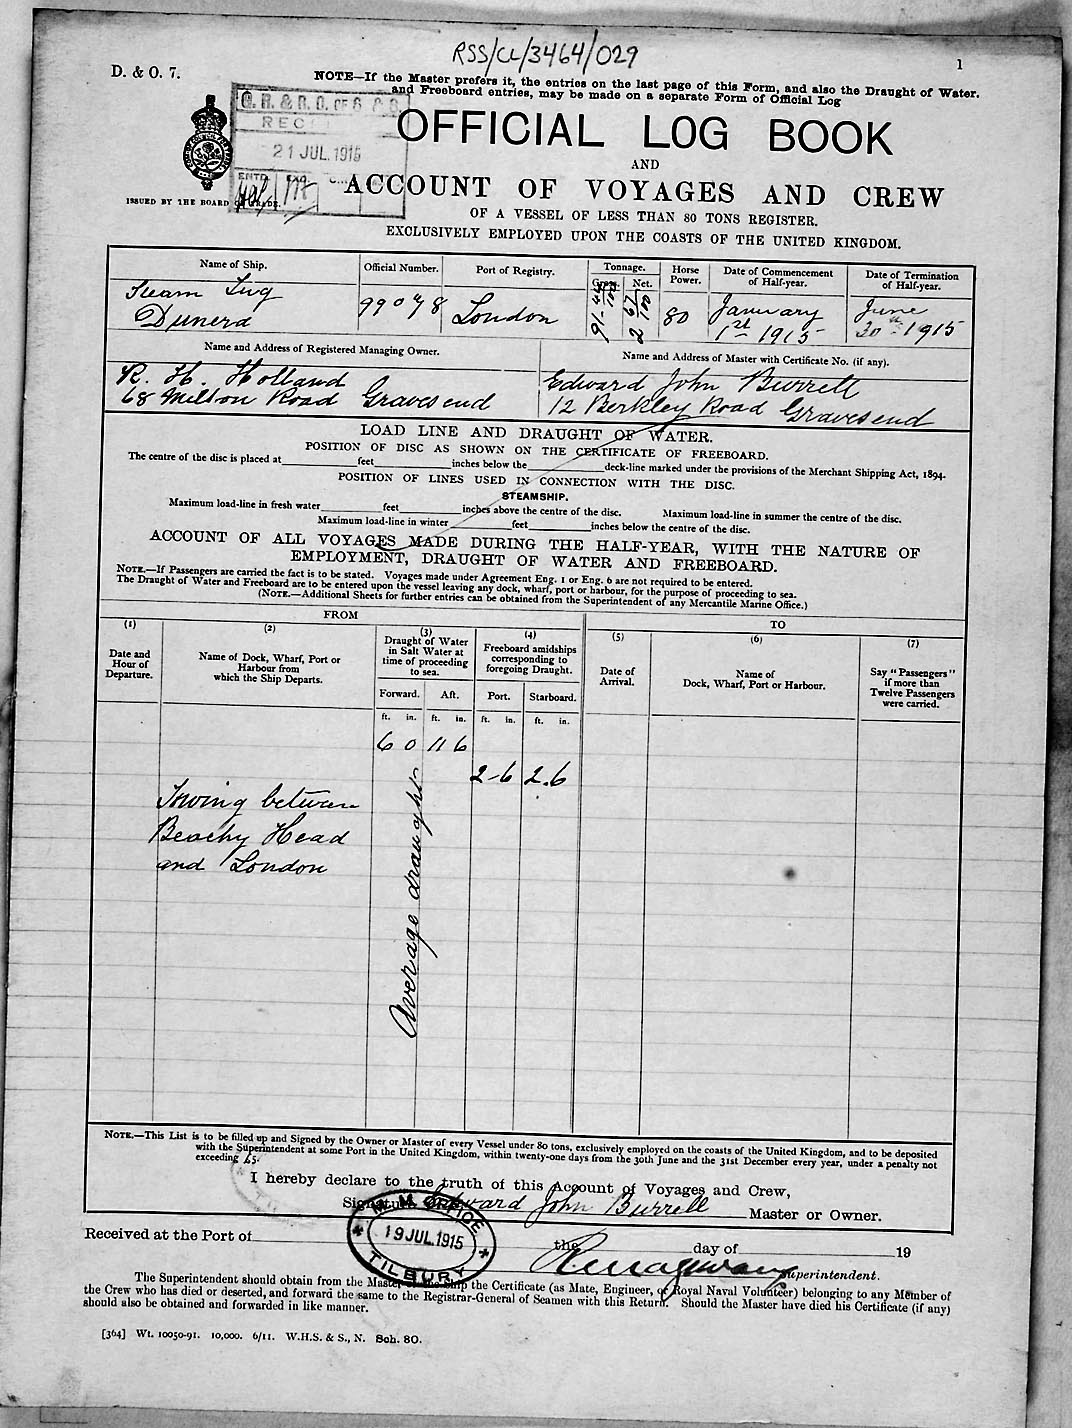 RSS/CL/3464/029
1
D. & O. 7.
NOTE—If the Master prefers it, the entries on the last page of this Form, and also the Draught of Water.
and Freeboard entries, may be made on a separate Form of Official Log
G. R. & R. O. OF S & S
REC
21 JUL. 1915
ENTD
OFFICIAL LOG BOOK
AND
ACCOUNT OF VOYAGES AND CREW
ISSUED BY THE BOARD OF TRADE.
OF A VESSEL OF LESS THAN 80 TONS REGISTER.
EXCLUSIVELY EMPLOYED UPON THE COASTS OF THE UNITED KINGDOM.
Name of Ship.
Official Number.
Port of Registry.
Tonnage.
Gross.
Net.
Horse Power.
Date of Commencement of Half-year.
Date of Termination of Half-year.
Steam Tug
Dunera
99078
London
91-44/100
2 67/100
80
January
1st 1915
June
30th 1915
Name and Address of Registered Managing Owner.
Name and Address of Master with Certificate No. (if any).
R. H. Holland
68 Milton Road Gravesend
Edward John Burrell
12 Berkley Road Gravesend
LOAD LINE AND DRAUGHT OF WATER.
POSITION OF DISC AS SHOWN ON THE CERTIFICATE OF FREEBOARD.
The centre of the disc is placed at feet inches below the deck-line marked under the provisions of the Merchant Shipping Act, 1894.
POSITION OF LINES USED IN CONNECTION WITH THE DISC.
STEAMSHIP.
Maximum load-line in fresh water feet inches above the centre of the disc. Maximum load-line in summer the centre of the disc.
Maximum load-line in winter feet inches below the centre of the disc.
ACCOUNT OF ALL VOYAGES MADE DURING THE HALF-YEAR, WITH THE NATURE OF
EMPLOYMENT, DRAUGHT OF WATER AND FREEBOARD.
NOTE.—If Passengers are carried the fact is to be stated. Voyages made under Agreement Eng. 1 or Eng. 6 are not required to be entered.
The Draught of Water and Freeboard are to be entered upon the vessel leaving any dock, wharf, port or harbour, for the purpose of proceeding to sea.
(NOTE.—Additional Sheets for further entries can be obtained from the Superintendent of any Mercantile Marine Office.)
FROM
TO
(1)
Date and
Hour of
Departure.
(2)
Name of Dock, Wharf, Port or
Harbour from
which the Ship Departs.
(3)
Draught of Water
in Salt Water at
time of proceeding
to sea.
Forward. Aft.
(4)
Freeboard amidships
corresponding to
foregoing Draught.
Port. Starboard.
(5)
Date of
Arrival.
(6)
Name of
Dock, Wharf, Port or Harbour.
(7)
Say "Passengers"
if more than
Twelve Passengers
were carried.
ft. in. ft. in. ft. in. ft. in.
6 0 11 6
2-6 2.6
Towing between
Beachy Head
and London
Average draught
NOTE.—This List is to be filled up and Signed by the Owner or Master of every Vessel under 80 tons, exclusively employed on the coasts of the United Kingdom, and to be deposited
with the Superintendent at some Port in the United Kingdom, within twenty-one days from the 30th June and the 31st December every year, under a penalty not
exceeding £5.
I hereby declare to the truth of this Account of Voyages and Crew,
Signature Edward John Burrell Master or Owner.
M. M. OFFICE
19 JUL. 1915
TILBURY
Received at the Port of the day of 19
Superintendent.
The Superintendent should obtain from the Master of the Ship the Certificate (as Mate, Engineer, or Royal Naval Volunteer) belonging to any Member of
the Crew who has died or deserted, and forward the same to the Registrar-General of Seamen with this Return. Should the Master have died his Certificate (if any)
should also be obtained and forwarded in like manner.
[364] Wt. 10050-91. 10,000. 6/11. W.H.S. & S., N. Sch. 80.